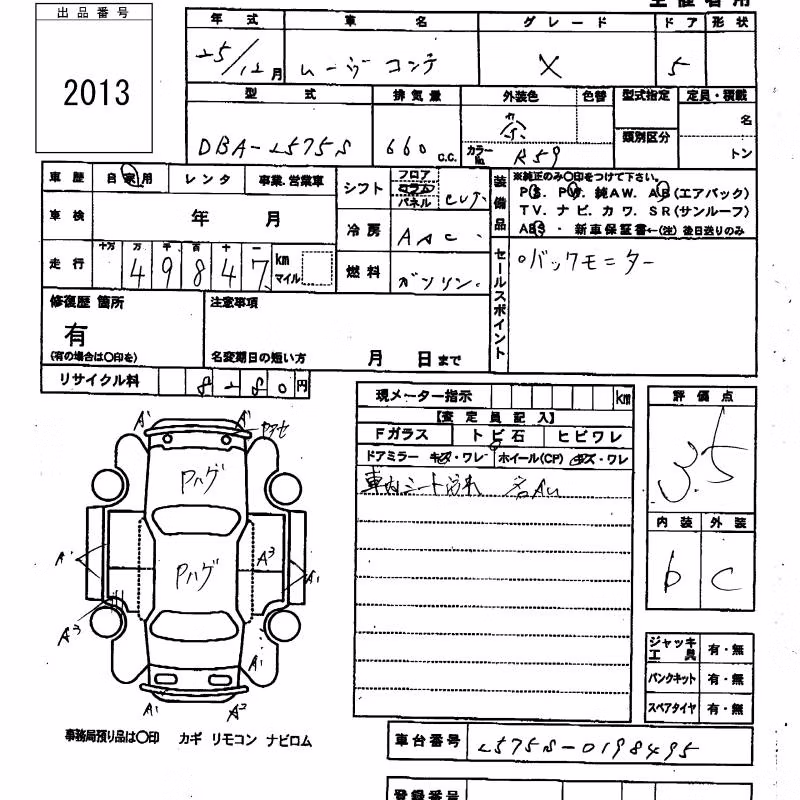 出品番号
2013
年式 車名 グレード ドア 形状
25/12月 ムーヴ コンテ X 5
型式 排気量 外装色 色替 型式指定 定員・積載
名
DBA-L575S 660 c.c. カラーNo. R59 類別区分
トン
車歴 自家用 レンタ 事業.営業車
車検 年 月
走行 十万 万 千 百 十 一
4 9 8 4 7 km マイル
シフト フロア コラム パネル CVT.
冷房 AAC.
燃料 ガソリン.
装備品
※純正のみ○印をつけて下さい。
PS. PW. 純AW. AB(エアバック)
TV. ナビ. カワ. SR(サンルーフ)
ABS ・ 新車保証書←(注) 後日送りのみ
セールスポイント
○バックモニター
修復歴 箇所
有
(有の場合は○印を)
注意事項
名変期日の短い方 月 日まで
リサイクル料 8280円
現メーター指示 km
【査定員記入】
Fガラス トビ石 ヒビワレ
ドアミラー キズ・ワレ ホイール(CP) キズ・ワレ
車内シート汚れ
評価点
3.5
内装 外装
b C
A1 A1
ヤケセ
Pハゲ
Pハゲ A3
A1 A1
A3
A1
A1 A2
ジャッキ工具 有・無
パンクキット 有・無
スペアタイヤ 有・無
事務局預り品は○印 カギ リモコン ナビロム
車台番号 L575S-0198495
登録番号